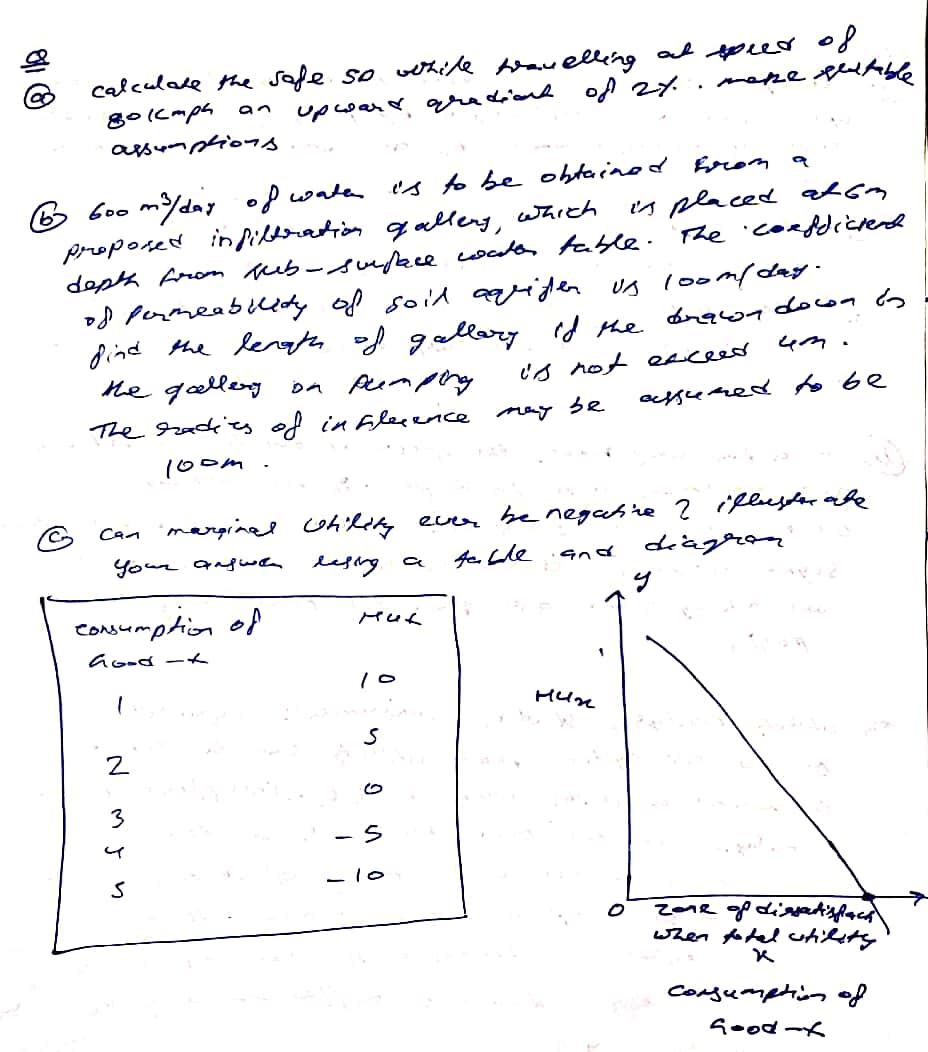 Q
(a) calculate the safe SD while travelling at speed of
80 kmph an upward gradient of 2%. make suitable
assumptions
(b) 600 m³/day of water is to be obtained from a
proposed infiltration gallery, which is placed at 6m
depth from sub-surface water table. The coefficient
of permeability of soil aquifer is 100m/day.
find the length of gallery if the drawn down in
the gallery on pumping is not exceed 4m.
The radius of influence may be assumed to be
100m.
(c) can marginal utility ever be negative? illustrate
your answer using a table and diagram
consumption of MUx
Good-x
1 10
2 5
3 0
4 -5
5 -10
y
MUx
0 zone of dissatisfact
when total utility
x
consumption of
Good-x